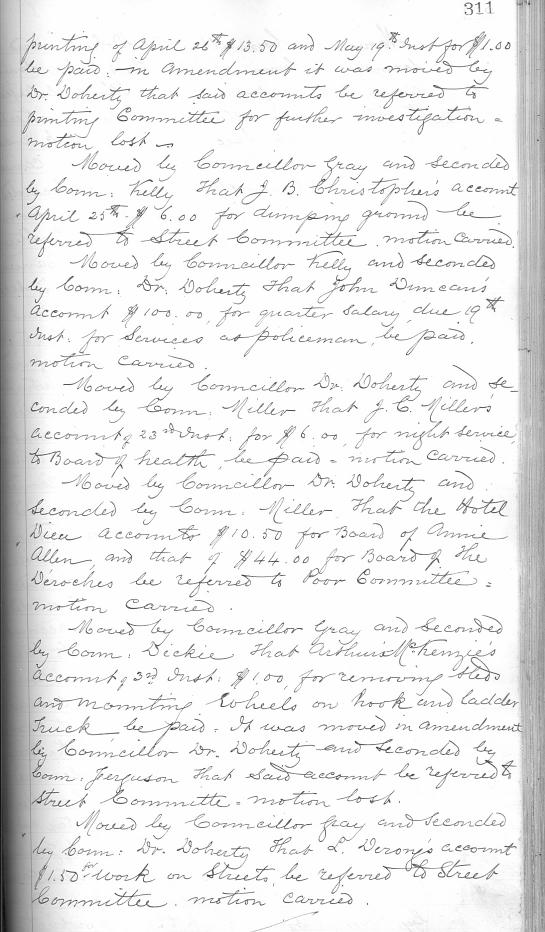 311
printing of April 26th $13.50 and May 19th Inst for $1.00
be paid. in amendment it was moved by
Dr. Doherty that said accounts be referred to
printing Committee for further investigation =
motion lost
Moved by Councillor Gray and seconded
by Coun: Kelly That J. B. Christopher's account
April 25th $6.00 for dumping ground be
referred to Street Committee. motion carried.
Moved by Councillor Kelly and seconded
by Coun: Dr. Doherty That John Duncan's
account $100.00, for quarter salary, due 19th
Inst. for services as policeman, be paid.
motion carried.
Moved by Councillor Dr. Doherty and se-
conded by Coun: Miller That J. C. Miller's
account of 23rd Inst: for $6.00, for night service,
to Board of health, be paid = motion carried.
Moved by Councillor Dr. Doherty and
seconded by Coun: Miller, That the Hotel
Dieu accounts $10.50 for Board of Annie
Allen, and that of $44.00 for Board of the
Deroches be referred to Poor Committee =
motion carried.
Moved by Councillor Gray and seconded
by Coun: Dickie That Arthur McKenzie's
account of 3rd Inst: $1.00, for removing sleds
and mounting wheels on hook and ladder
Truck, be paid. It was moved in amendment
by Councillor Dr. Doherty and seconded by
Coun: Ferguson That said account be referred to
Street Committe = motion lost.
Moved by Councillor Gray and seconded
by Coun: Dr. Doherty That L. account
$1.50 for work on Streets, be referred to Street
Committee. motion carried.